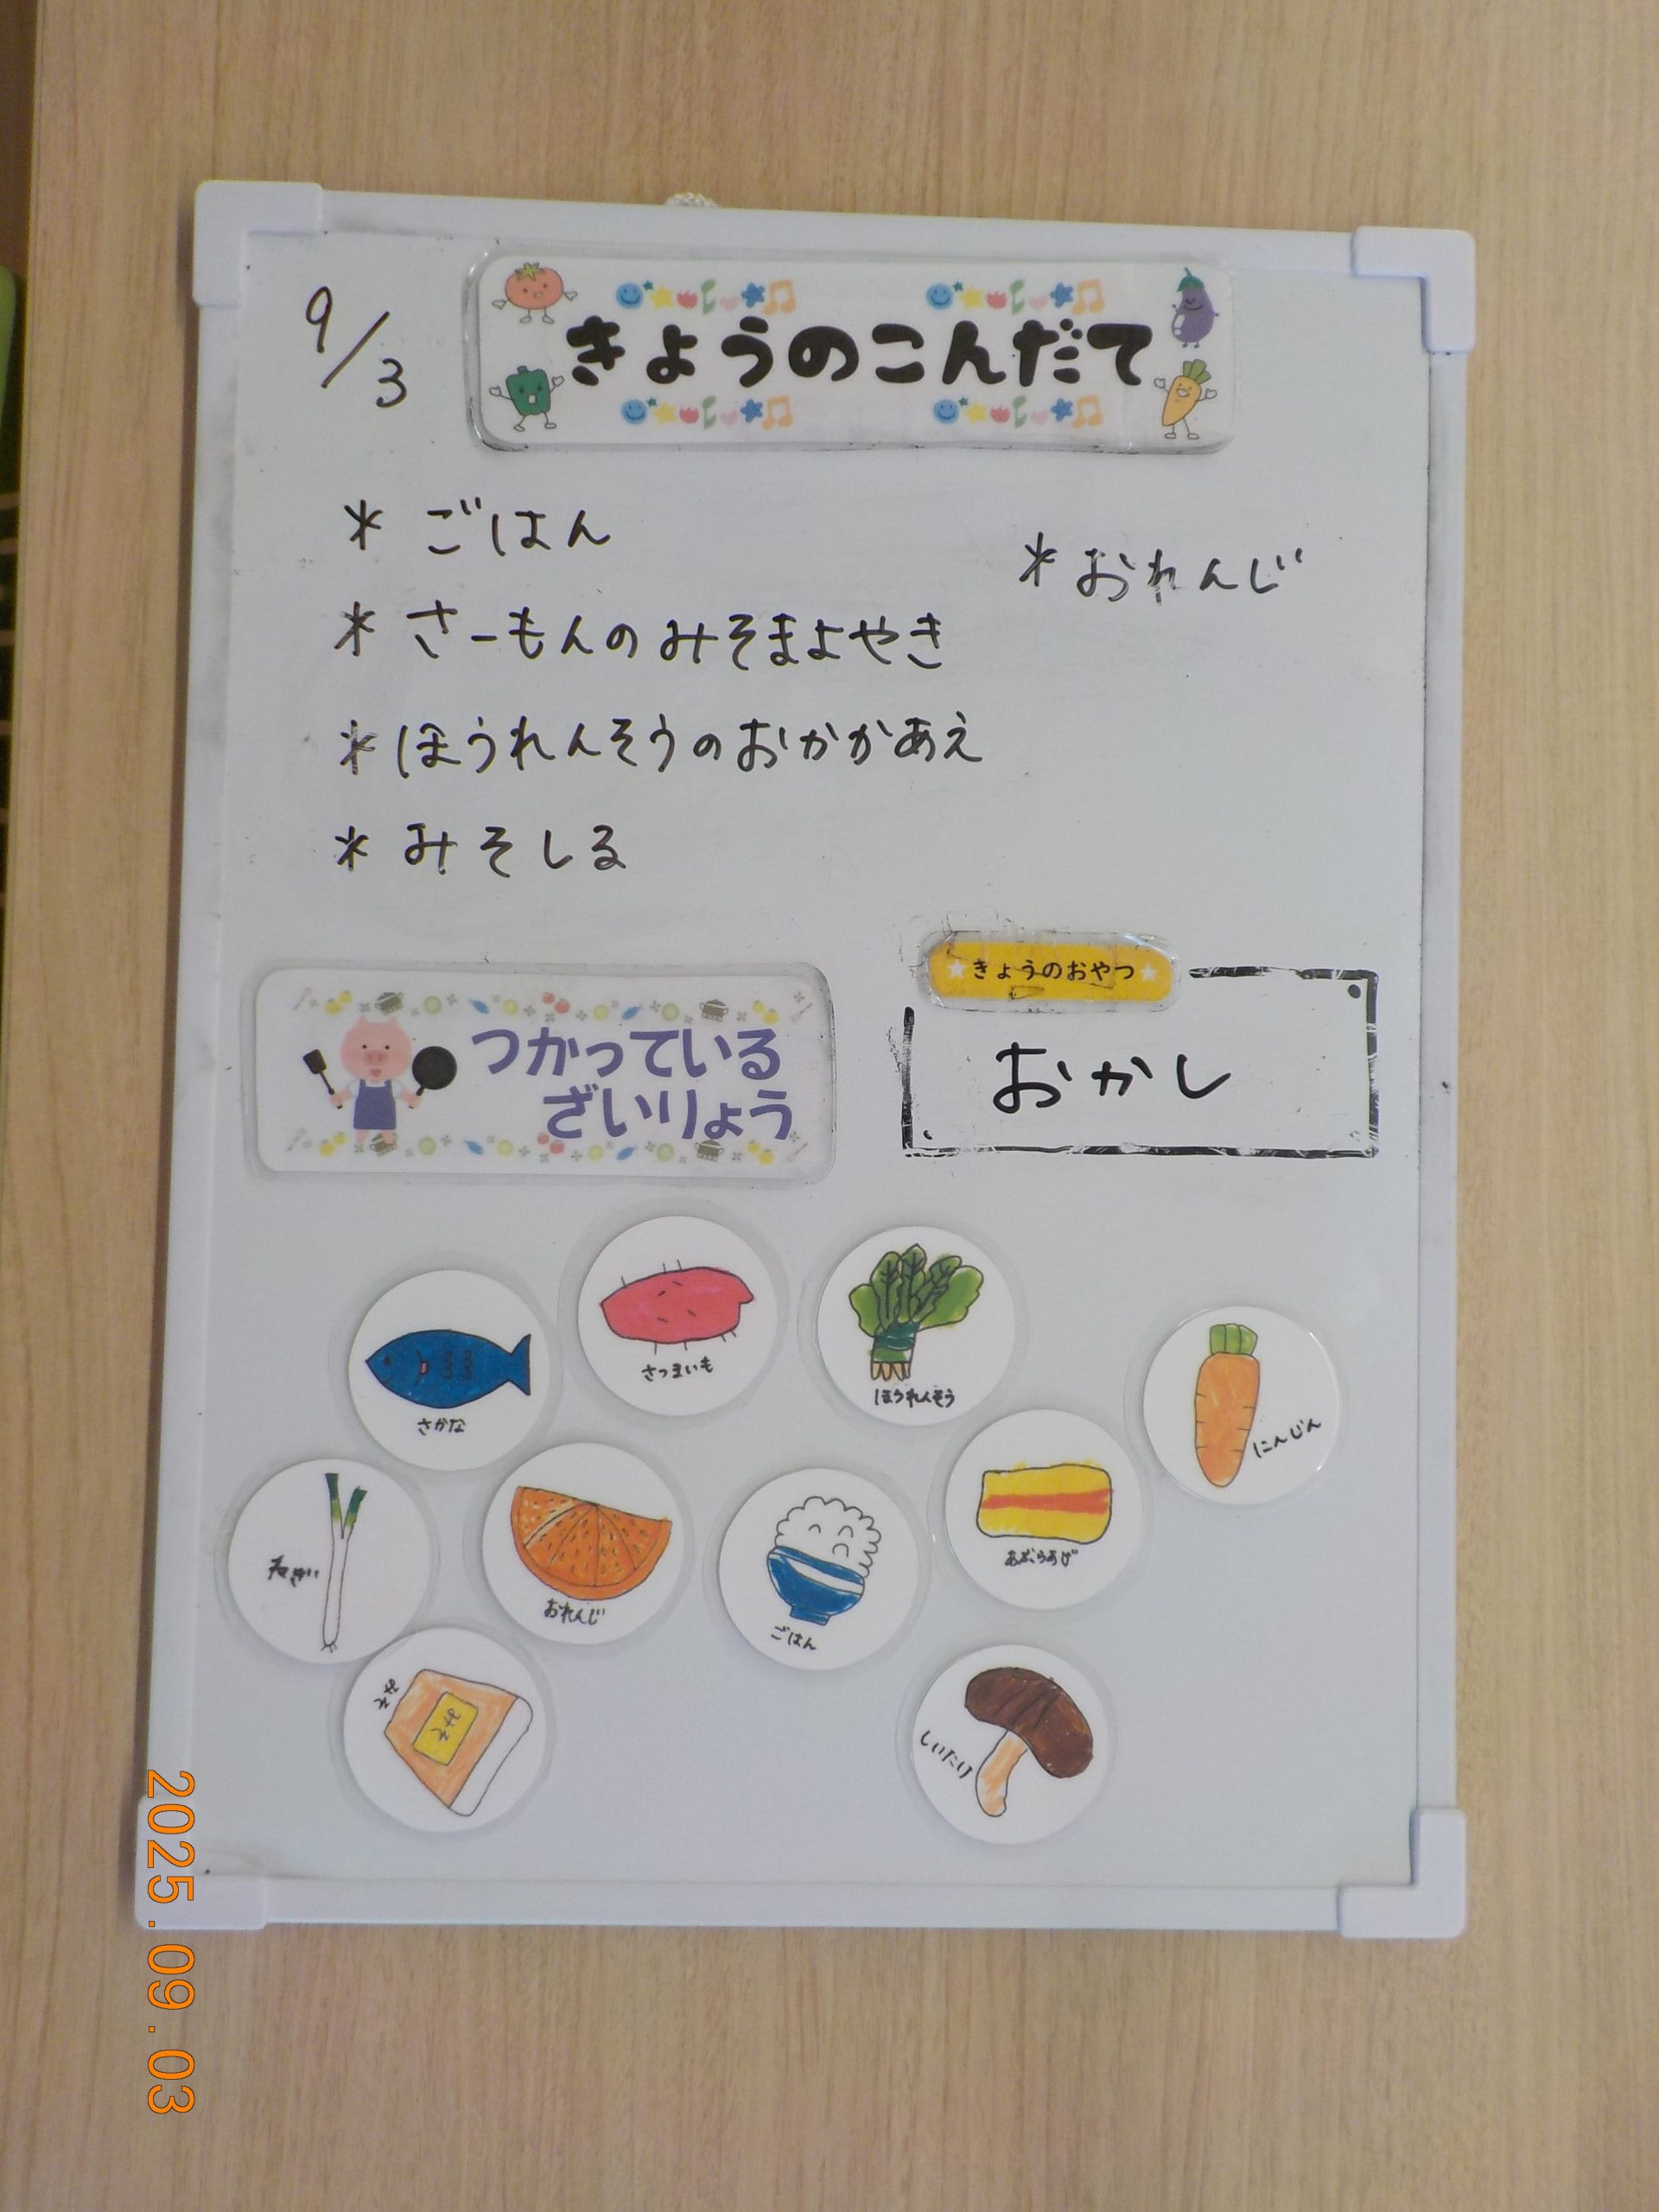 9/3
きょうのこんだて
* ごはん
* さーもんのみそまよやき
* ほうれんそうのおかかあえ
* みそしる
* おれんじ
つかっている
ざいりょう
きょうのおやつ
おかし
さかな
さつまいも
ほうれんそう
にんじん
ねぎ
おれんじ
ごはん
あぶらあげ
みそ
みそ
しいたけ
2025.09.03